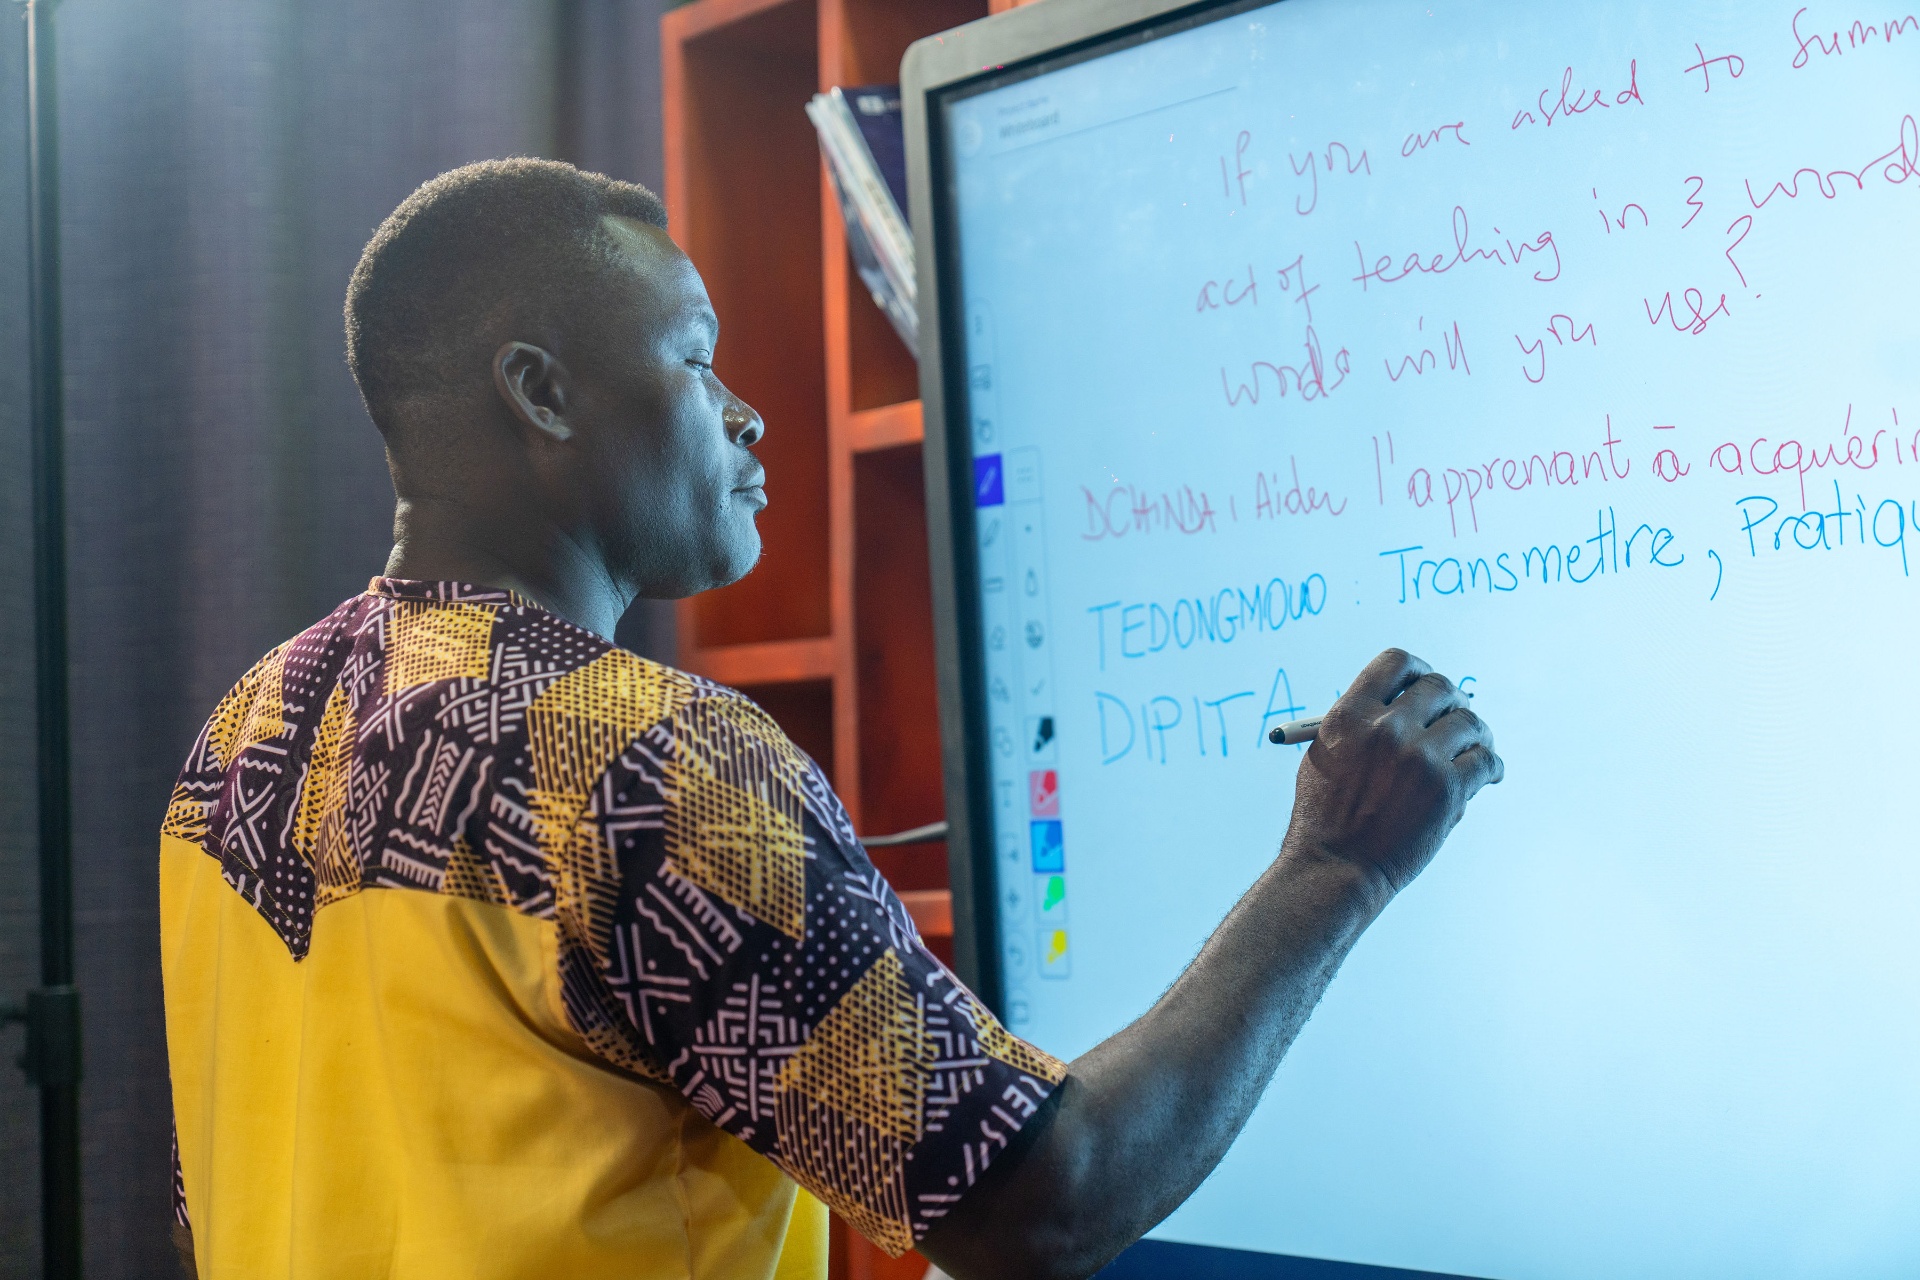 Whiteboard
If you are asked to Summ
act of teaching in 3 word
words will you use?
DCHINDA : Aider l'apprenant à acquérir
TEDONGMOUO : Transmettre, Pratiqu
DIPITA